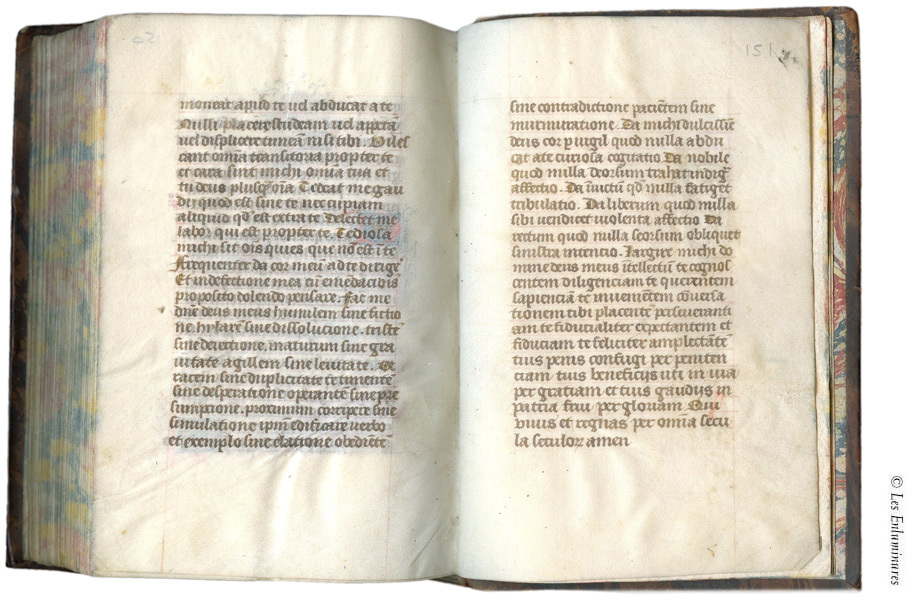 moueat apud te uel abducat a te
Nulli placere studeam uel appetā
uel displicere timeā nisi tibi. Viles
cant omīa transitoria propter te
et cara sint michi omīa tua et
tu deus plusq̄ oīa Tedeat me gau
dij quod est sine te nec cupiam
aliquid qd̄ est extra te Delectet me
labor qui est propter te. Tediosa
michi sit oīs quies que nō est ī te
Frequenter da cor meū ad te dirige
Et in defectione mea
proposito dolendo pensare. Fac me
dn̄e deus meus humilem sine fictio
ne. hylarē sine dissolucione. tristē
sine deiectione. maturum sine gra
uitate agillem sine leuitate. Ve
racem sine duplicitate te timentē
sine desperatione operantē sine pre
sumpcione. proximum corripere sine
simulatione ipm̄ edificare uerbo
et exemplo sine elatione obedientē
151
sine contradictione pacientem sine
murmuratione. Da michi dulcissīe
deus cor puigil quod nulla abdu
cat a te curiosa cogitatio Da nobile
quod nulla deorsum trahat indigͣ
affectio. Da īuictū qd̄ nulla fatiget
tribulatio. Da liberum quod nulla
sibi uendicet uiolenta affectio Da
rectum quod nulla seorsum obliquet
sinistra intencio. Largire michi do
mine deus meus ītellectū te cognos
centem diligenciam te querentem
sapienciā te inuenientem cōuersa
tionem tibi placentē perseuerant
am te fiducialiter expectantem et
fiduciam te feliciter amplectātē
tuis penis configi per peniten
ciam tuis beneficijs uti in uia
per gratiam et tuis gaudijs in
patria frui per gloriam Qui
viuis et regnas per omīa secu
la seculoꝝ amen
© Les Enluminures